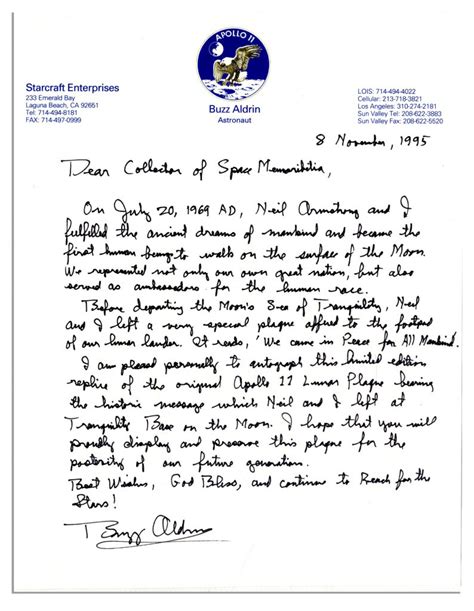 APOLLO 11
Starcraft Enterprises
233 Emerald Bay
Laguna Beach, CA 92651
Tel: 714-494-8181
FAX: 714-497-0999
Buzz Aldrin
Astronaut
LOIS: 714-494-4022
Cellular: 213-718-3821
Los Angeles: 310-274-2181
Sun Valley Tel: 208-622-3883
Sun Valley Fax: 208-622-5520
8 November, 1995
Dear Collector of Space Memoribilia,
On July 20, 1969 AD, Neil Armstrong and I
fulfilled the ancient dreams of mankind and became the
first human beings to walk on the surface of the Moon.
We represented not only our own great nation, but also
served as ambassadors for the human race.
Before departing the Moon's Sea of Tranquility, Neil
and I left a very special plaque affixed to the footpad
of our lunar lander. It reads, 'We came in Peace for All Mankind.'
I am pleased personally to autograph this limited edition
replica of the original Apollo 11 Lunar Plaque bearing
the historic message which Neil and I left at
Tranquility Base on the Moon. I hope that you will
proudly display and preserve this plaque for the
posterity of our future generation.
Best Wishes, God Bless, and continue to Reach for the
Stars!
Buzz Aldrin